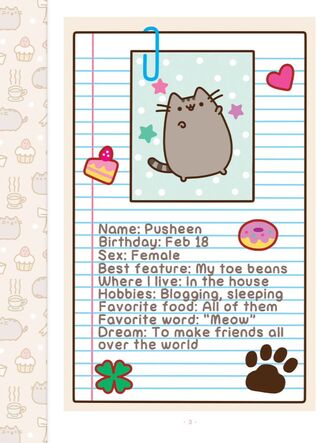 Name: Pusheen
Birthday: Feb 18
Sex: Female
Best feature: My toe beans
Where I live: In the house
Hobbies: Blogging, sleeping
Favorite food: All of them
Favorite word: "Meow"
Dream: To make friends all
over the world
- 3 -